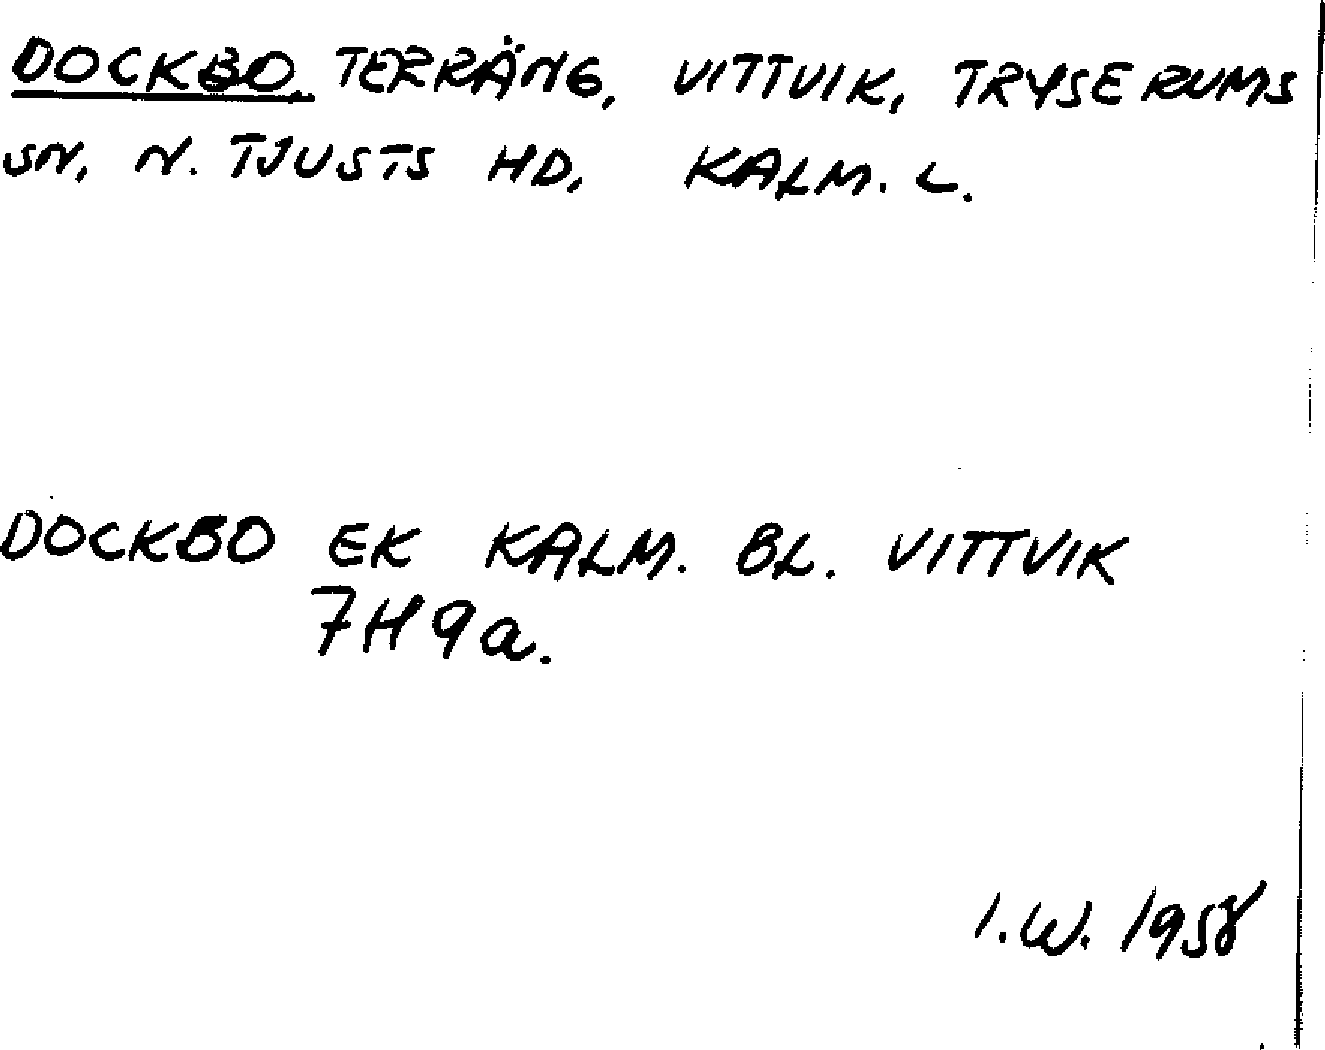 DOCKBO, TERRÄNG, VITTVIK, TRYSERUMS
SN, N. TJUSTS HD, KALM. L.
DOCKBO EK KALM. BL. VITTVIK
7H9a.
I.W. 1958